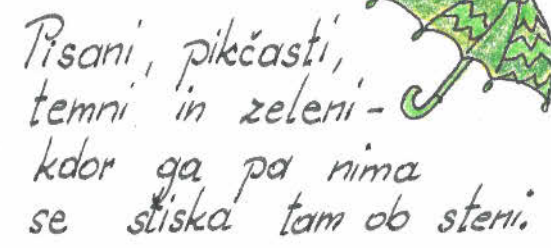 Pisani, pikčasti,
temni in zeleni -
kdor ga pa nima
se stiska tam ob steni.